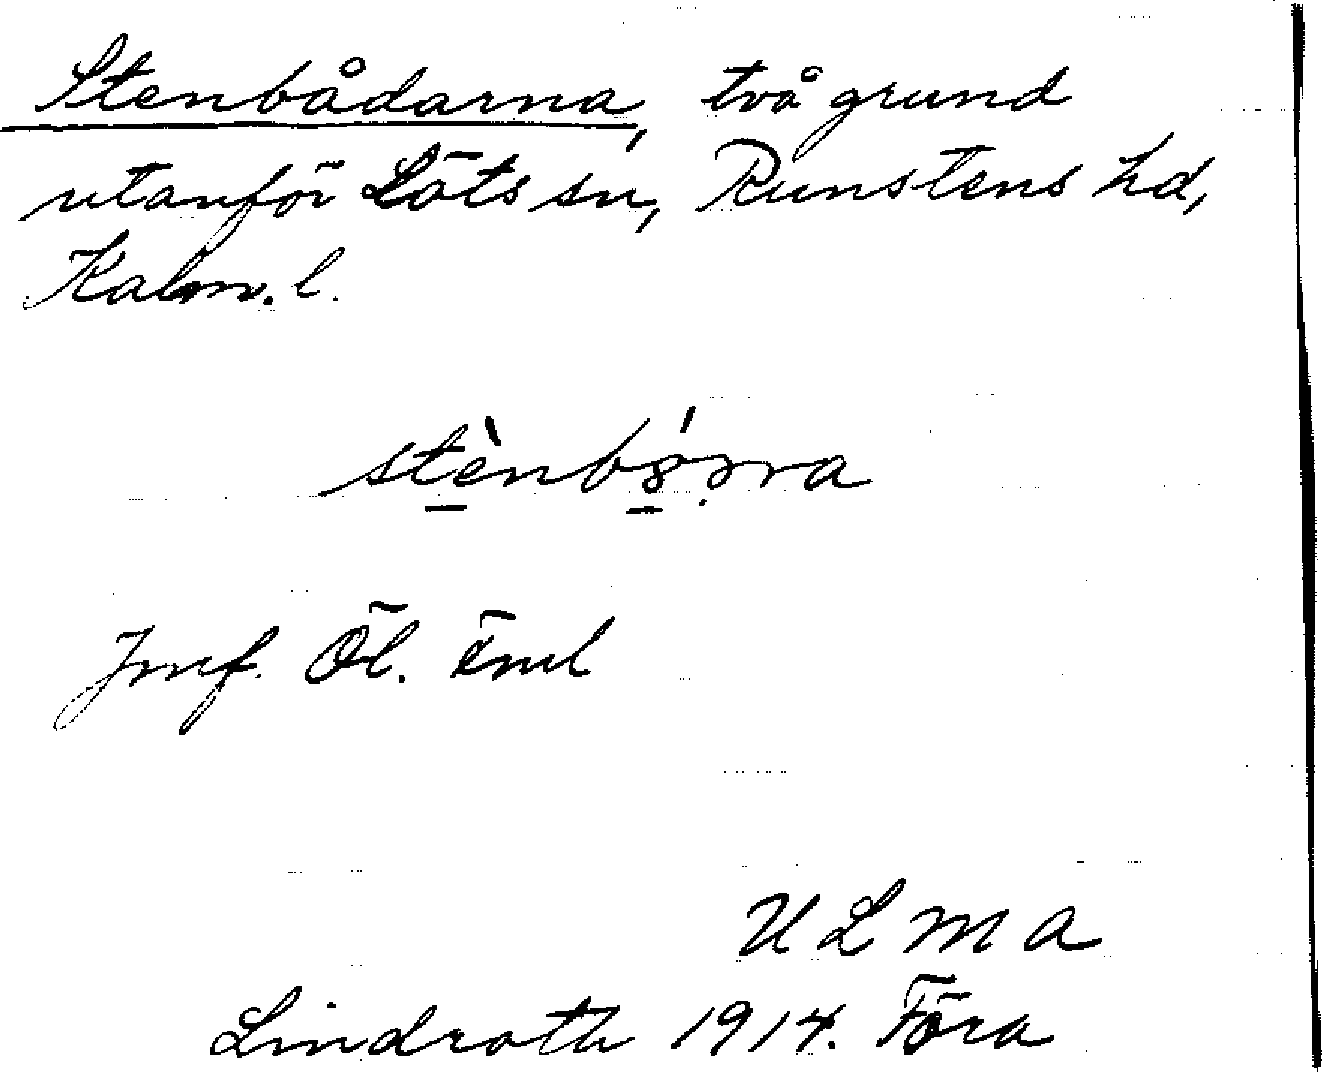 Stenbådarna, två grund
utanför Löts sn, Runstens hd,
Kalm. l.
Jmf. Öl. Enl
ULMA
Lindroth 1914. Föra